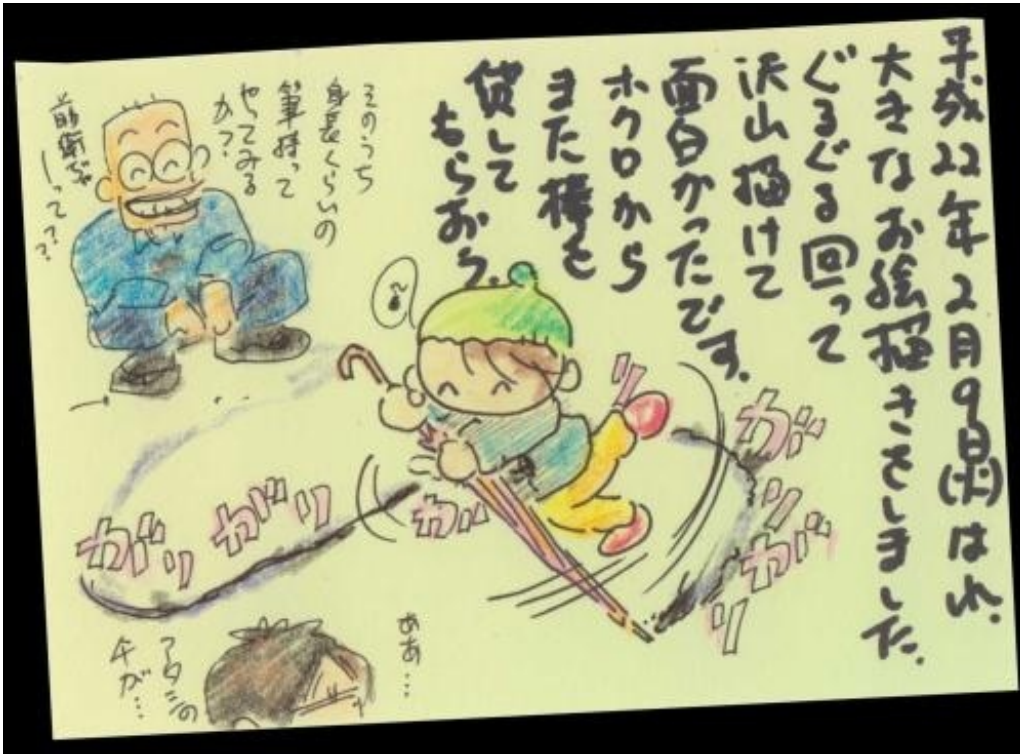 平成22年2月9日(火)はれ.
大きなお絵描きをしました.
ぐるぐる回って
沢山描けて
面白かったです.
ホクロから
また棒を
貸して
もらおう.
そのうち
身長くらいの
筆持って
やってみる
か?
前衛ぢゃ
しって??
ガリ
ガリ
ガリ
ガリ
ガリ
ああ…
アタシの
牛が…